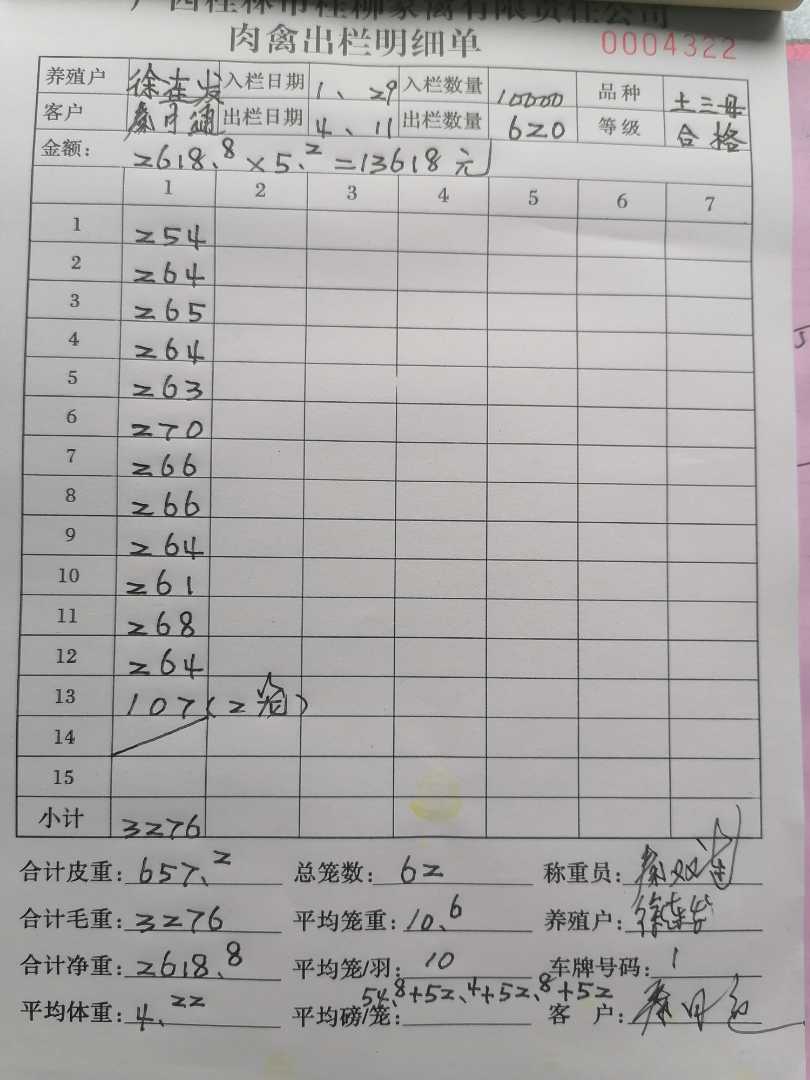 广西桂林市桂柳家禽有限责任公司
肉禽出栏明细单 0004322
养殖户 徐连发 入栏日期 1、29 入栏数量 10000 品种 土三母
客户 秦日通 出栏日期 4、11 出栏数量 620 等级 合格
金额: 2618.8×5.2=13618元
1 2 3 4 5 6 7
1 254
2 264
3 265
4 264
5 263
6 270
7 266
8 266
9 264
10 261
11 268
12 264
13 107(2笼)
14
15
小计 3276
合计皮重: 657.2 总笼数: 62 称重员:
合计毛重: 3276 平均笼重: 10.6 养殖户:
合计净重: 2618.8 平均笼/羽: 10 车牌号码: 1
平均体重: 4.22 平均磅/笼: 54.8+52.4+52.8+52 客 户: